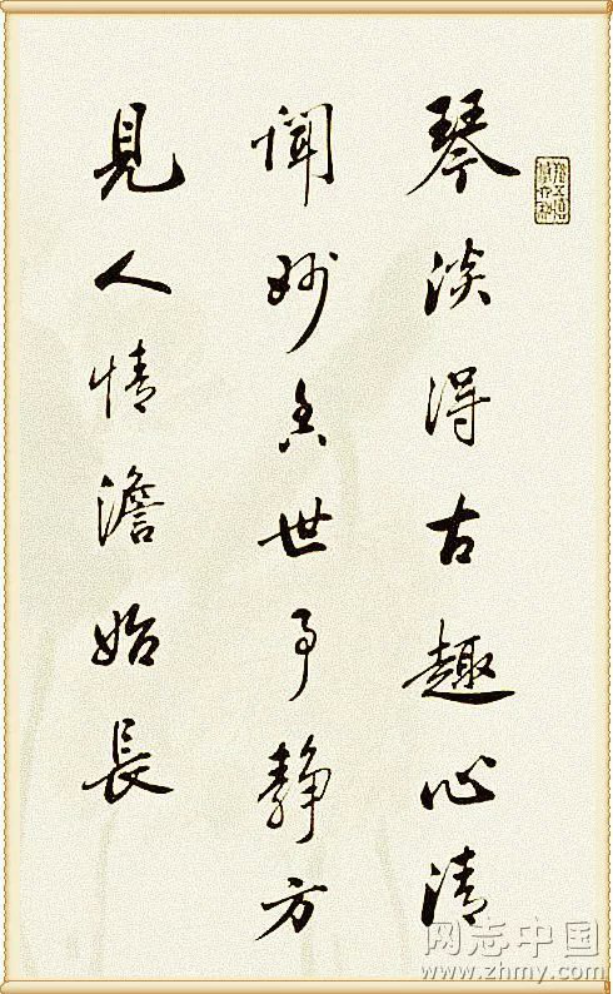 琴淡得古趣心清
闻妙香世事静方
見人情澹始長
网志中国
www.zhmy.com